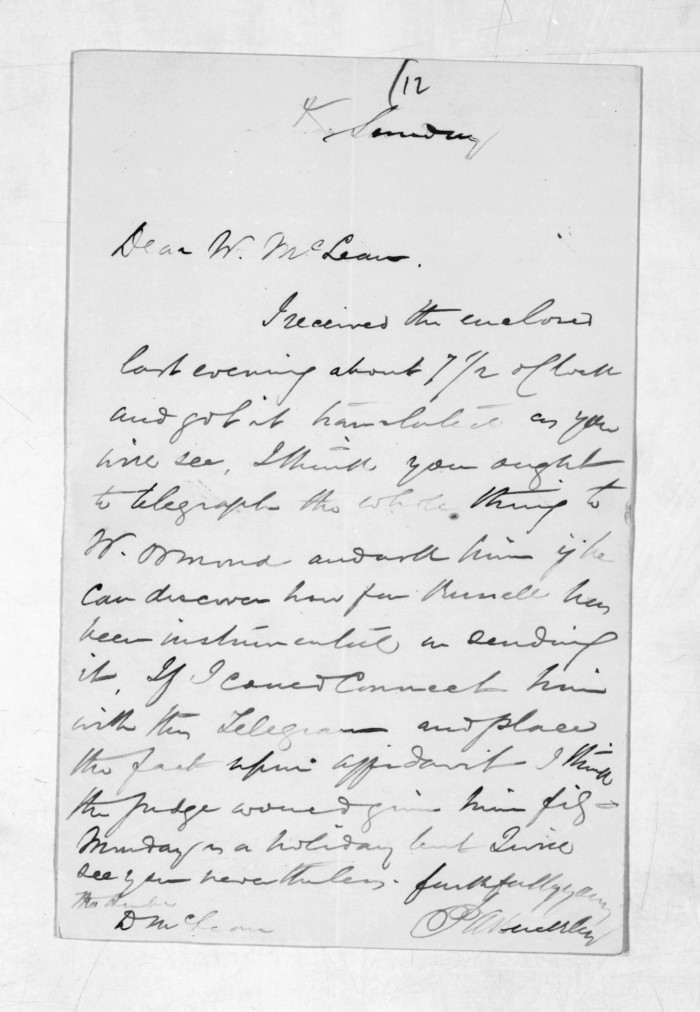 /12
Sunday
Dear W. McLean.
I received the enclosed
last evening about 7 1/2 o'Clock
and got it translated as you
will see, I think you ought
to telegraph the whole thing to
W. Ormond and ask him if he
can discover how far Russell has
been instrumental in sending
it, If I could Connect him
with this Telegram and place
the fact upon affidavit I think
the Judge would give him
Monday is a holiday but I will
see you nevertheless. faithfully yours
D McLean